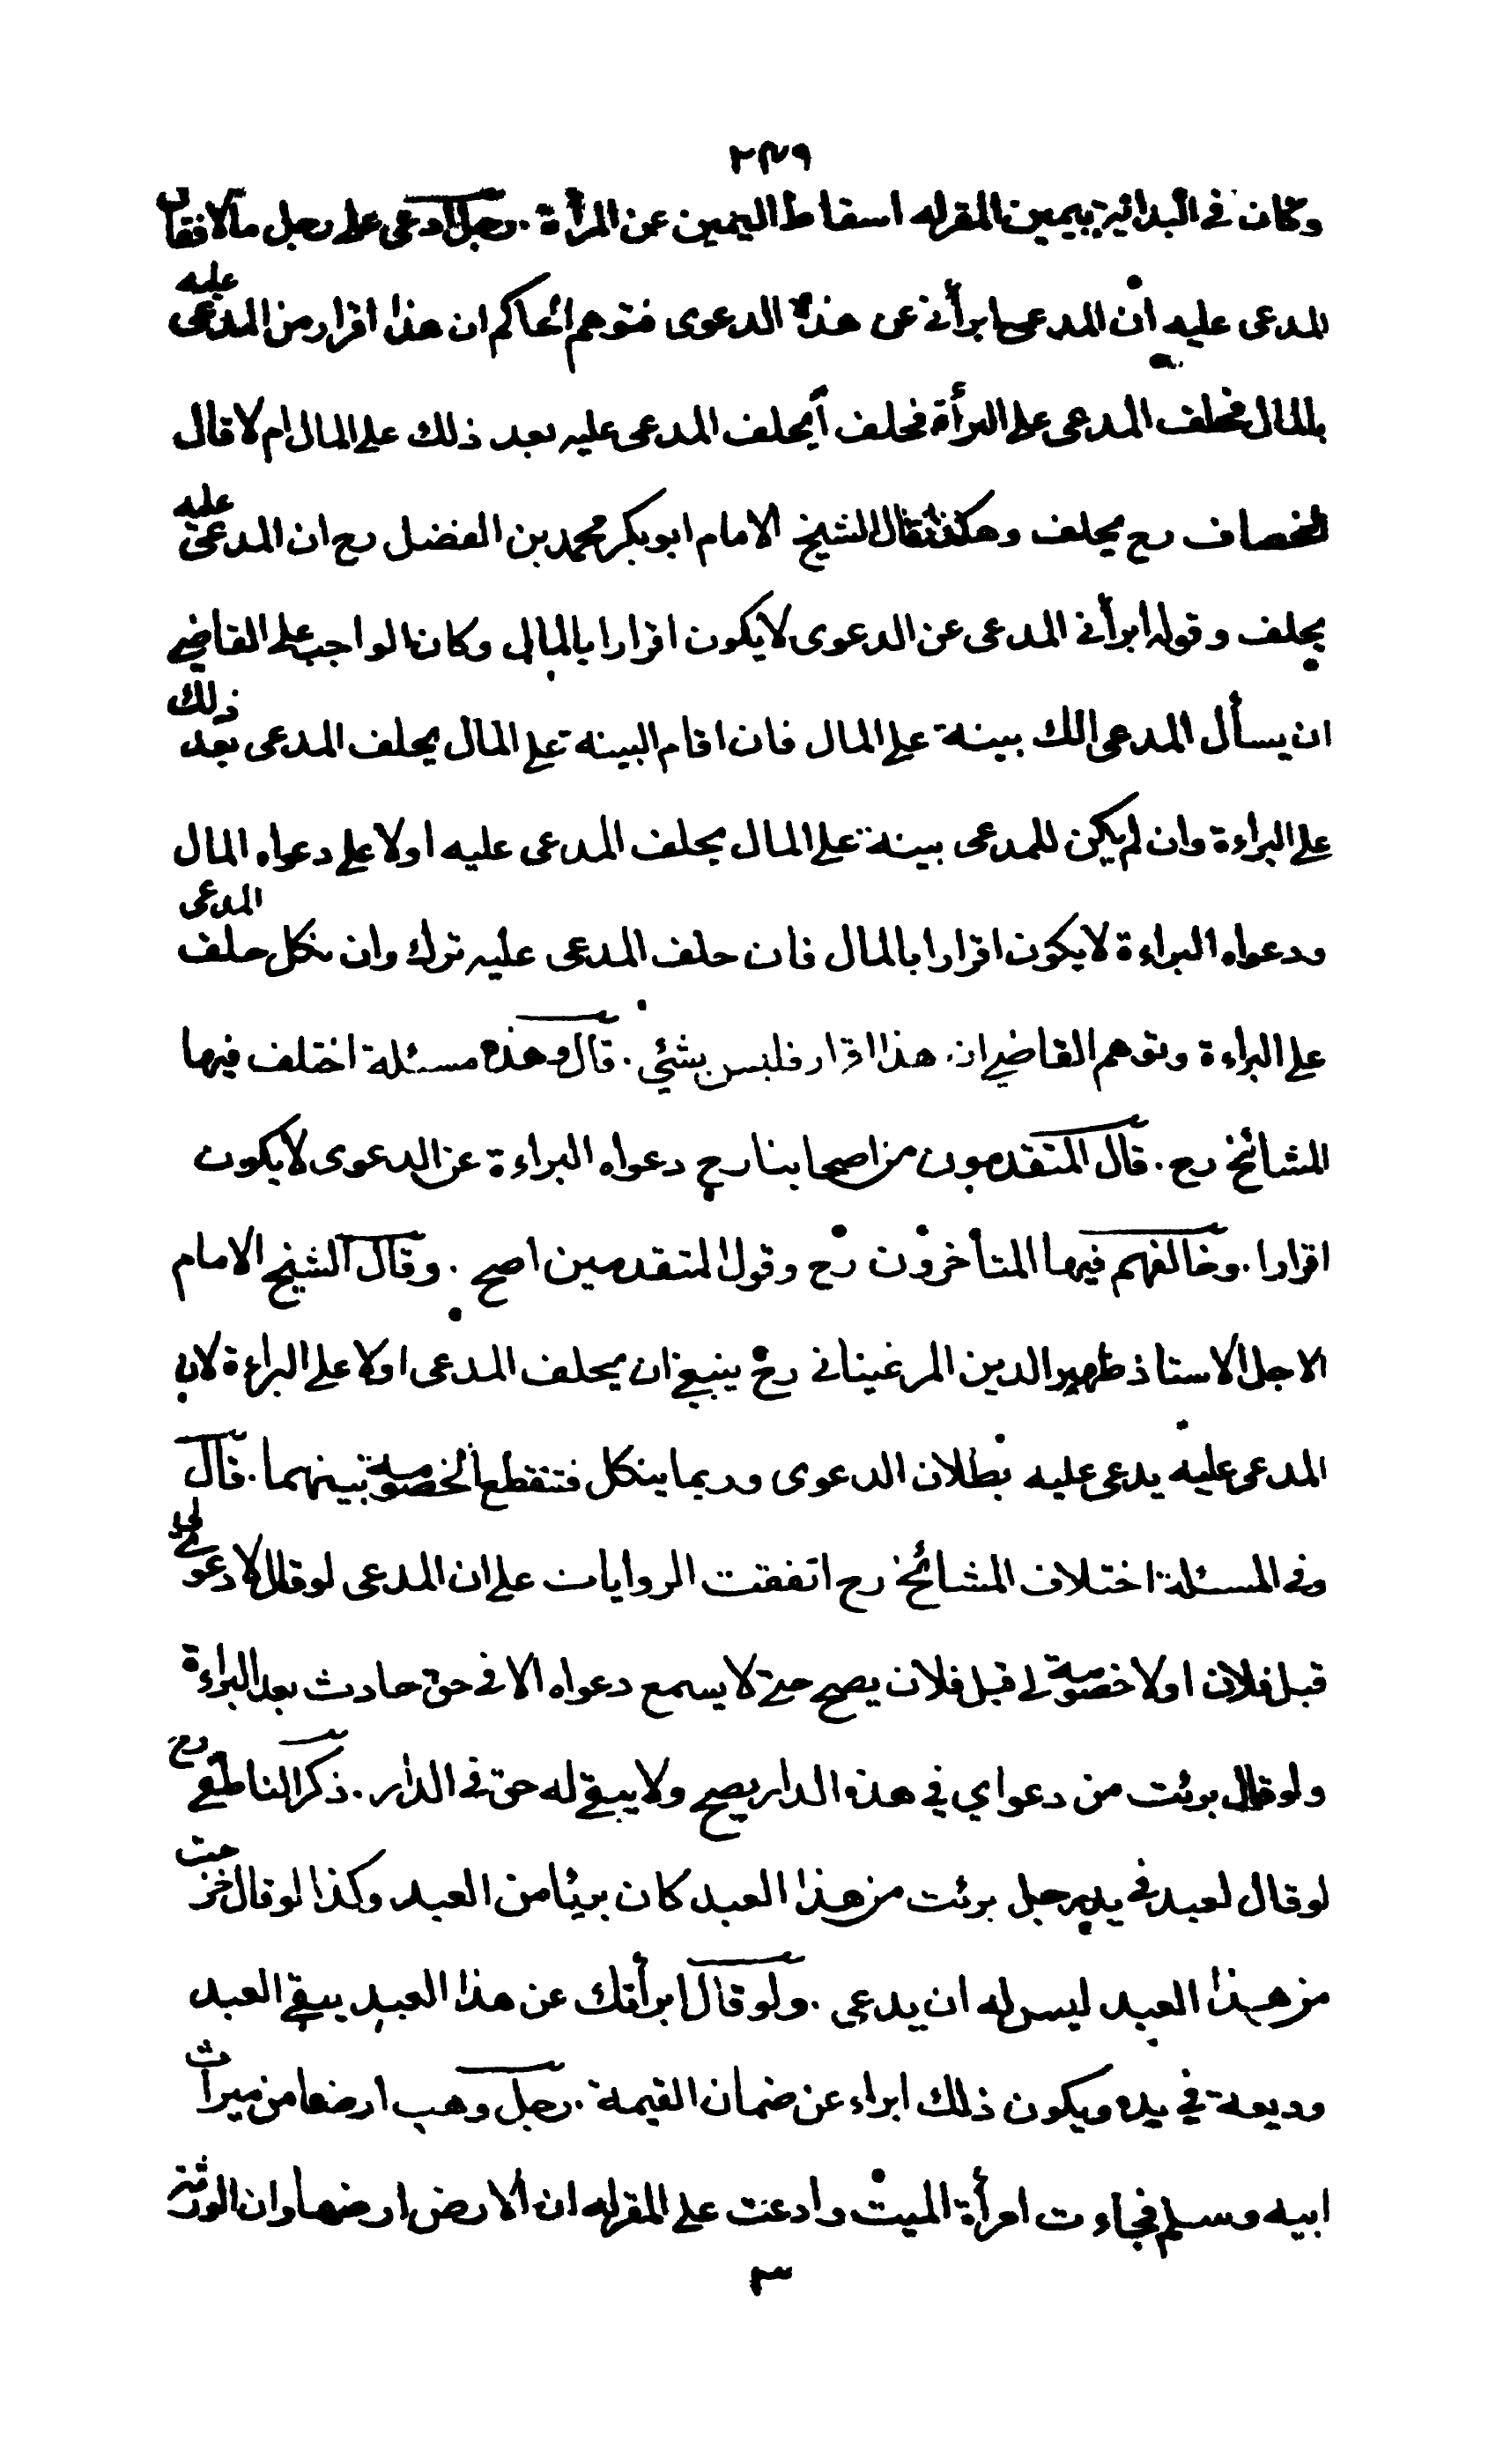 ٢٣٩
وكان في البداية بيمين المقر له اسقاط اليمين عن المرأة . رجل ادعى على رجل مالا فقال
المدعى عليه ان المدعي ابرأني عن هذه الدعوى فتوهم الحاكم ان هذا اقرار من المدعى عليه
بالمال فحلف المدعى على البرأة فحلف أيحلف المدعى عليه بعد ذلك على المال ام لا قال
الخصاف رح يحلف وهكذا قال الشيخ الامام ابو بكر محمد بن الفضل رح ان المدعى عليه
يحلف وقوله ابرأني المدعى عن الدعوى لا يكون اقرارا بالمال وكان الواجب على القاضي
ان يسأل المدعى الك بينة على المال فان اقام البينة على المال يحلف المدعى بعد ذلك
على البراءة وان لم يكن للمدعى بينة على المال يحلف المدعى عليه اولا على دعواه المال
ودعواه البراءة لا يكون اقرارا بالمال فان حلف المدعى عليه ترك وان نكل حلف المدعى
على البراءة وتوهم القاضي ان هذا اقرار فليس بشئي . قال وهذه مسئلة اختلف فيها
المشائخ رح . قال المتقدمون من اصحابنا رح دعواه البراءة عن الدعوى لا يكون
اقرارا . وخالفهم فيها المتأخرون رح وقول المتقدمين اصح . وقال الشيخ الامام
الاجل الاستاذ ظهير الدين المرغيناني رح ينبغي ان يحلف المدعى اولا على البراءة لان
المدعى عليه يدعى عليه بطلان الدعوى وربما ينكل فتنقطع الخصومة بينهما . قال
وفي المسئلة اختلاف المشائخ رح اتفقت الروايات على ان المدعى لو قال لا دعوى لي
قبل فلان او لا خصومة لي قبل فلان يصح حتى لا يسمع دعواه الا في حق حادث بعد البراءة
ولو قال برئت من دعواي في هذه الدار يصح ولا يبقى له حق في الدار . ذكر الناطفي رح
لو قال لعبد في يد رجل برئت من هذا العبد كان بريئا من العبد وكذا لو قال خرجت
من هذا العبد ليس له ان يدعى . ولو قال ابرأتك عن هذا العبد يبقى العبد
وديعة في يده ويكون ذلك ابراء عن ضمان القيمة . رجل وهب ارضا من ميراث
ابيه وسلم فجاءت امرأة الميت وادعت على المقر له ان الارض ارضها وان الورثة
٣